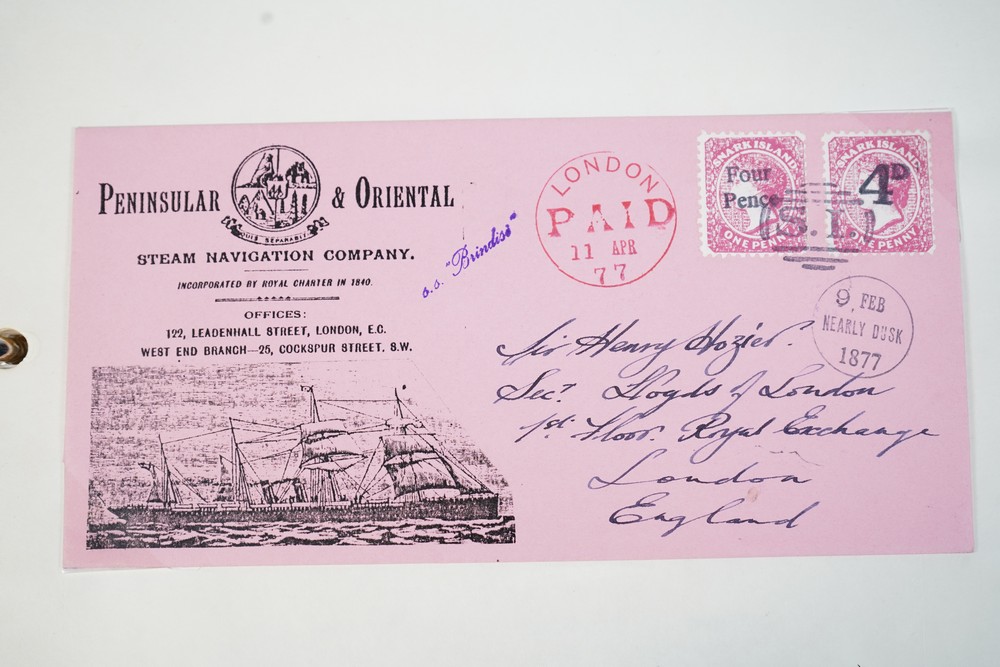 PENINSULAR & ORIENTAL
QUIS SEPARABIT
STEAM NAVIGATION COMPANY.
INCORPORATED BY ROYAL CHARTER IN 1840.
OFFICES:
122, LEADENHALL STREET, LONDON, E.C.
WEST END BRANCH—25, COCKSPUR STREET, S.W.
s.s. "Brindisi"
LONDON
PAID
11 APR
77
SNARK ISLAND
Four
Pence
ONE PENNY
SNARK ISLAND
4D
ONE PENNY
S.I.
9, FEB
NEARLY DUSK
1877
Sir Henry Hozier.
Secy. Lloyds of London
1st Floor. Royal Exchange
London
England